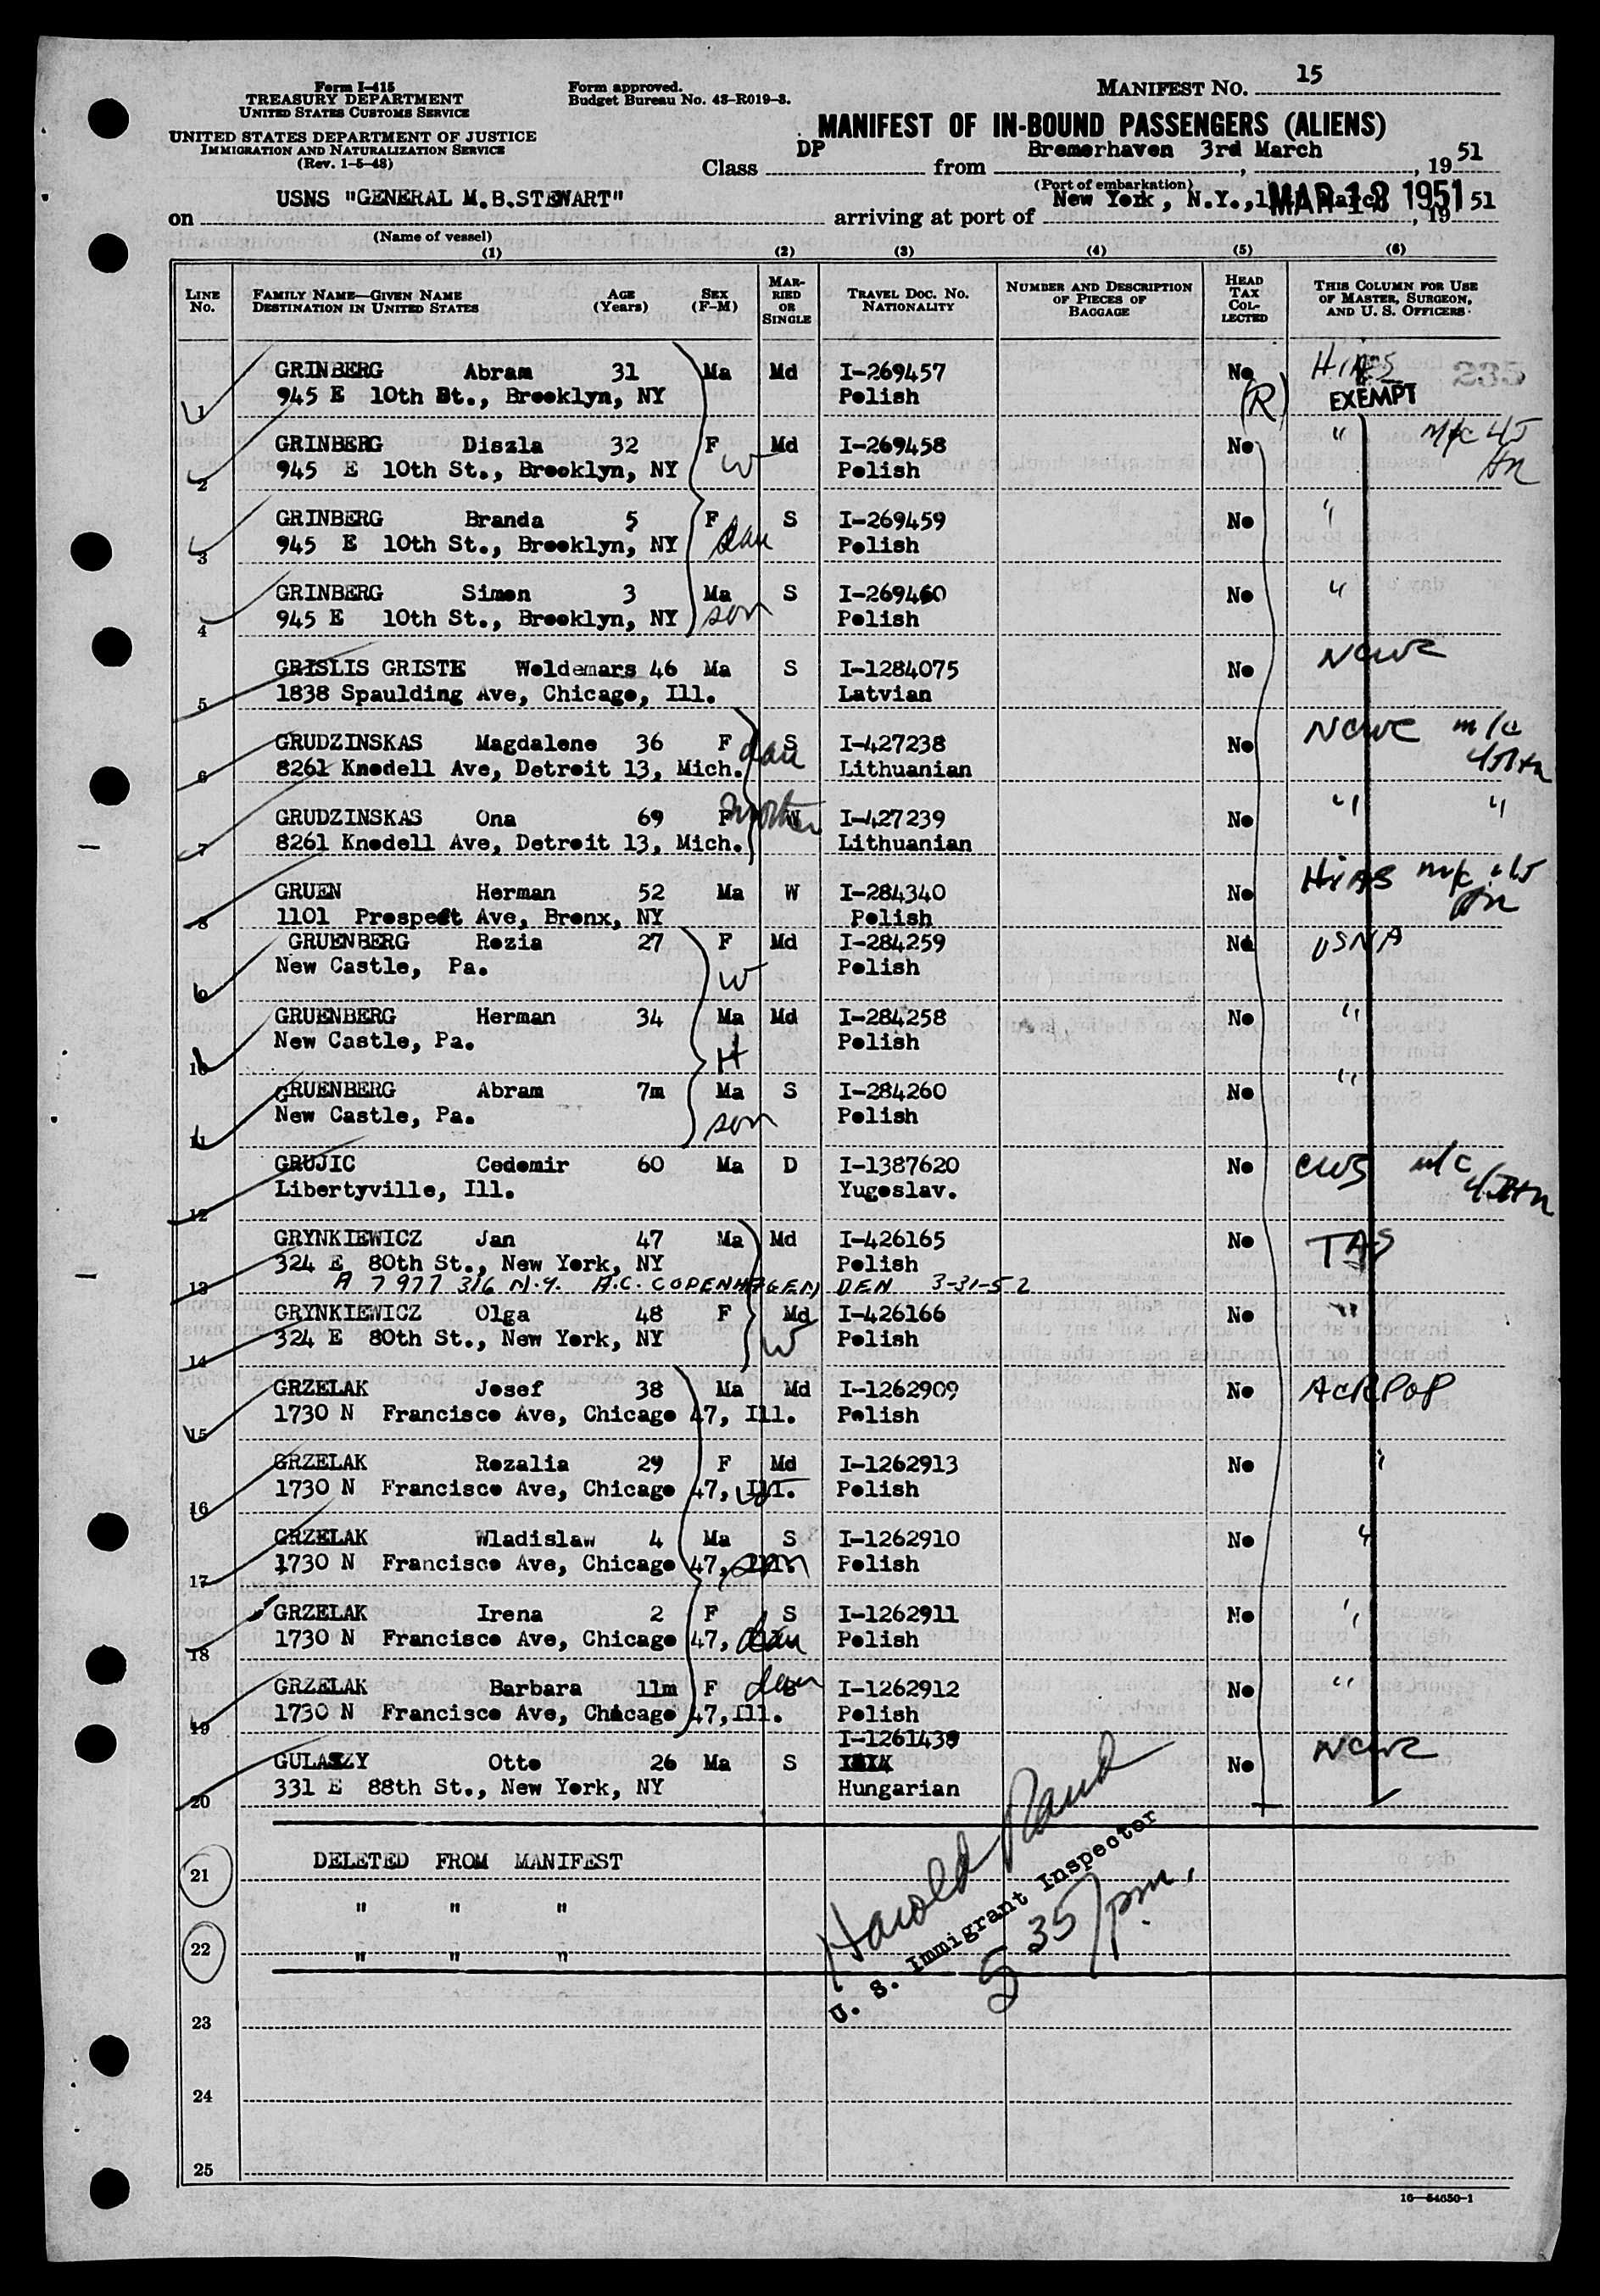 Form I-415
TREASURY DEPARTMENT
UNITED STATES CUSTOMS SERVICE
UNITED STATES DEPARTMENT OF JUSTICE
IMMIGRATION AND NATURALIZATION SERVICE
(Rev. 1-5-48)
Form approved.
Budget Bureau No. 43-R019-3.
MANIFEST NO. 15
MANIFEST OF IN-BOUND PASSENGERS (ALIENS)
Class DP from Bremerhaven 3rd March, 19 51
(Port of embarkation)
on USNS "GENERAL M.B.STEWART" arriving at port of New York, N.Y., MAR 13 1951, 19 51
(Name of vessel)
(1) (2) (3) (4) (5) (6)
LINE NO. FAMILY NAME—GIVEN NAME DESTINATION IN UNITED STATES AGE (Years) SEX (F-M) MARRIED OR SINGLE TRAVEL DOC. NO. NATIONALITY NUMBER AND DESCRIPTION OF PIECES OF BAGGAGE HEAD TAX COLLECTED THIS COLUMN FOR USE OF MASTER, SURGEON, AND U. S. OFFICERS
GRINBERG Abram 31 Ma Md I-269457 No HIAS 235
1 945 E 10th St., Brooklyn, NY Polish (R) EXEMPT
GRINBERG Diszla 32 F Md I-269458 No " m/c 4J
2 945 E 10th St., Brooklyn, NY W Polish Hn
GRINBERG Branda 5 F S I-269459 No "
3 945 E 10th St., Brooklyn, NY dau Polish
GRINBERG Simon 3 Ma S I-269460 No "
4 945 E 10th St., Brooklyn, NY son Polish
GRISLIS GRISTE Woldemars 46 Ma S I-1284075 No NCWC
5 1838 Spaulding Ave, Chicago, Ill. Latvian
GRUDZINSKAS Magdalene 36 F dau S I-427238 No NCWC m/c
6 8261 Knodell Ave, Detroit 13, Mich. Lithuanian
GRUDZINSKAS Ona 69 F mother W I-427239 No " "
7 8261 Knodell Ave, Detroit 13, Mich. Lithuanian
GRUEN Herman 52 Ma W I-284340 No HIAS m/c
8 1101 Prospect Ave, Bronx, NY Polish
GRUENBERG Rozia 27 F Md I-284259 No USNA
9 New Castle, Pa. W Polish
GRUENBERG Herman 34 Ma Md I-284258 No "
10 New Castle, Pa. H Polish
GRUENBERG Abram 7m Ma S I-284260 No "
11 New Castle, Pa. son Polish
GRUJIC Cedomir 60 Ma D I-1387620 No CWS m/c
12 Libertyville, Ill. Yugoslav.
GRYNKIEWICZ Jan 47 Ma Md I-426165 No TAS
324 E 80th St., New York, NY Polish
13 A 7 977 316 N.Y. A.C. COPENHAGEN, DEN 3-31-52
GRYNKIEWICZ Olga 48 F Md I-426166 No "
14 324 E 80th St., New York, NY W Polish
GRZELAK Josef 38 Ma Md I-1262909 No ACRPOP
15 1730 N Francisco Ave, Chicago 47, Ill. Polish
GRZELAK Rozalia 29 F Md I-1262913 No "
16 1730 N Francisco Ave, Chicago 47, Ill. W Polish
GRZELAK Wladislaw 4 Ma S I-1262910 No "
17 1730 N Francisco Ave, Chicago 47, Ill. son Polish
GRZELAK Irena 2 F S I-1262911 No "
18 1730 N Francisco Ave, Chicago 47, Ill. dau Polish
GRZELAK Barbara 11m F dau S I-1262912 No "
19 1730 N Francisco Ave, Chicago 47, Ill. Polish
I-1261439
GULASZY Otto 26 Ma S No NCWC
20 331 E 88th St., New York, NY Hungarian
21 DELETED FROM MANIFEST
" " "
22 " " "
Harold Rand
U. S. Immigrant Inspector
5 35/pm.
23
24
25
16—54650-1